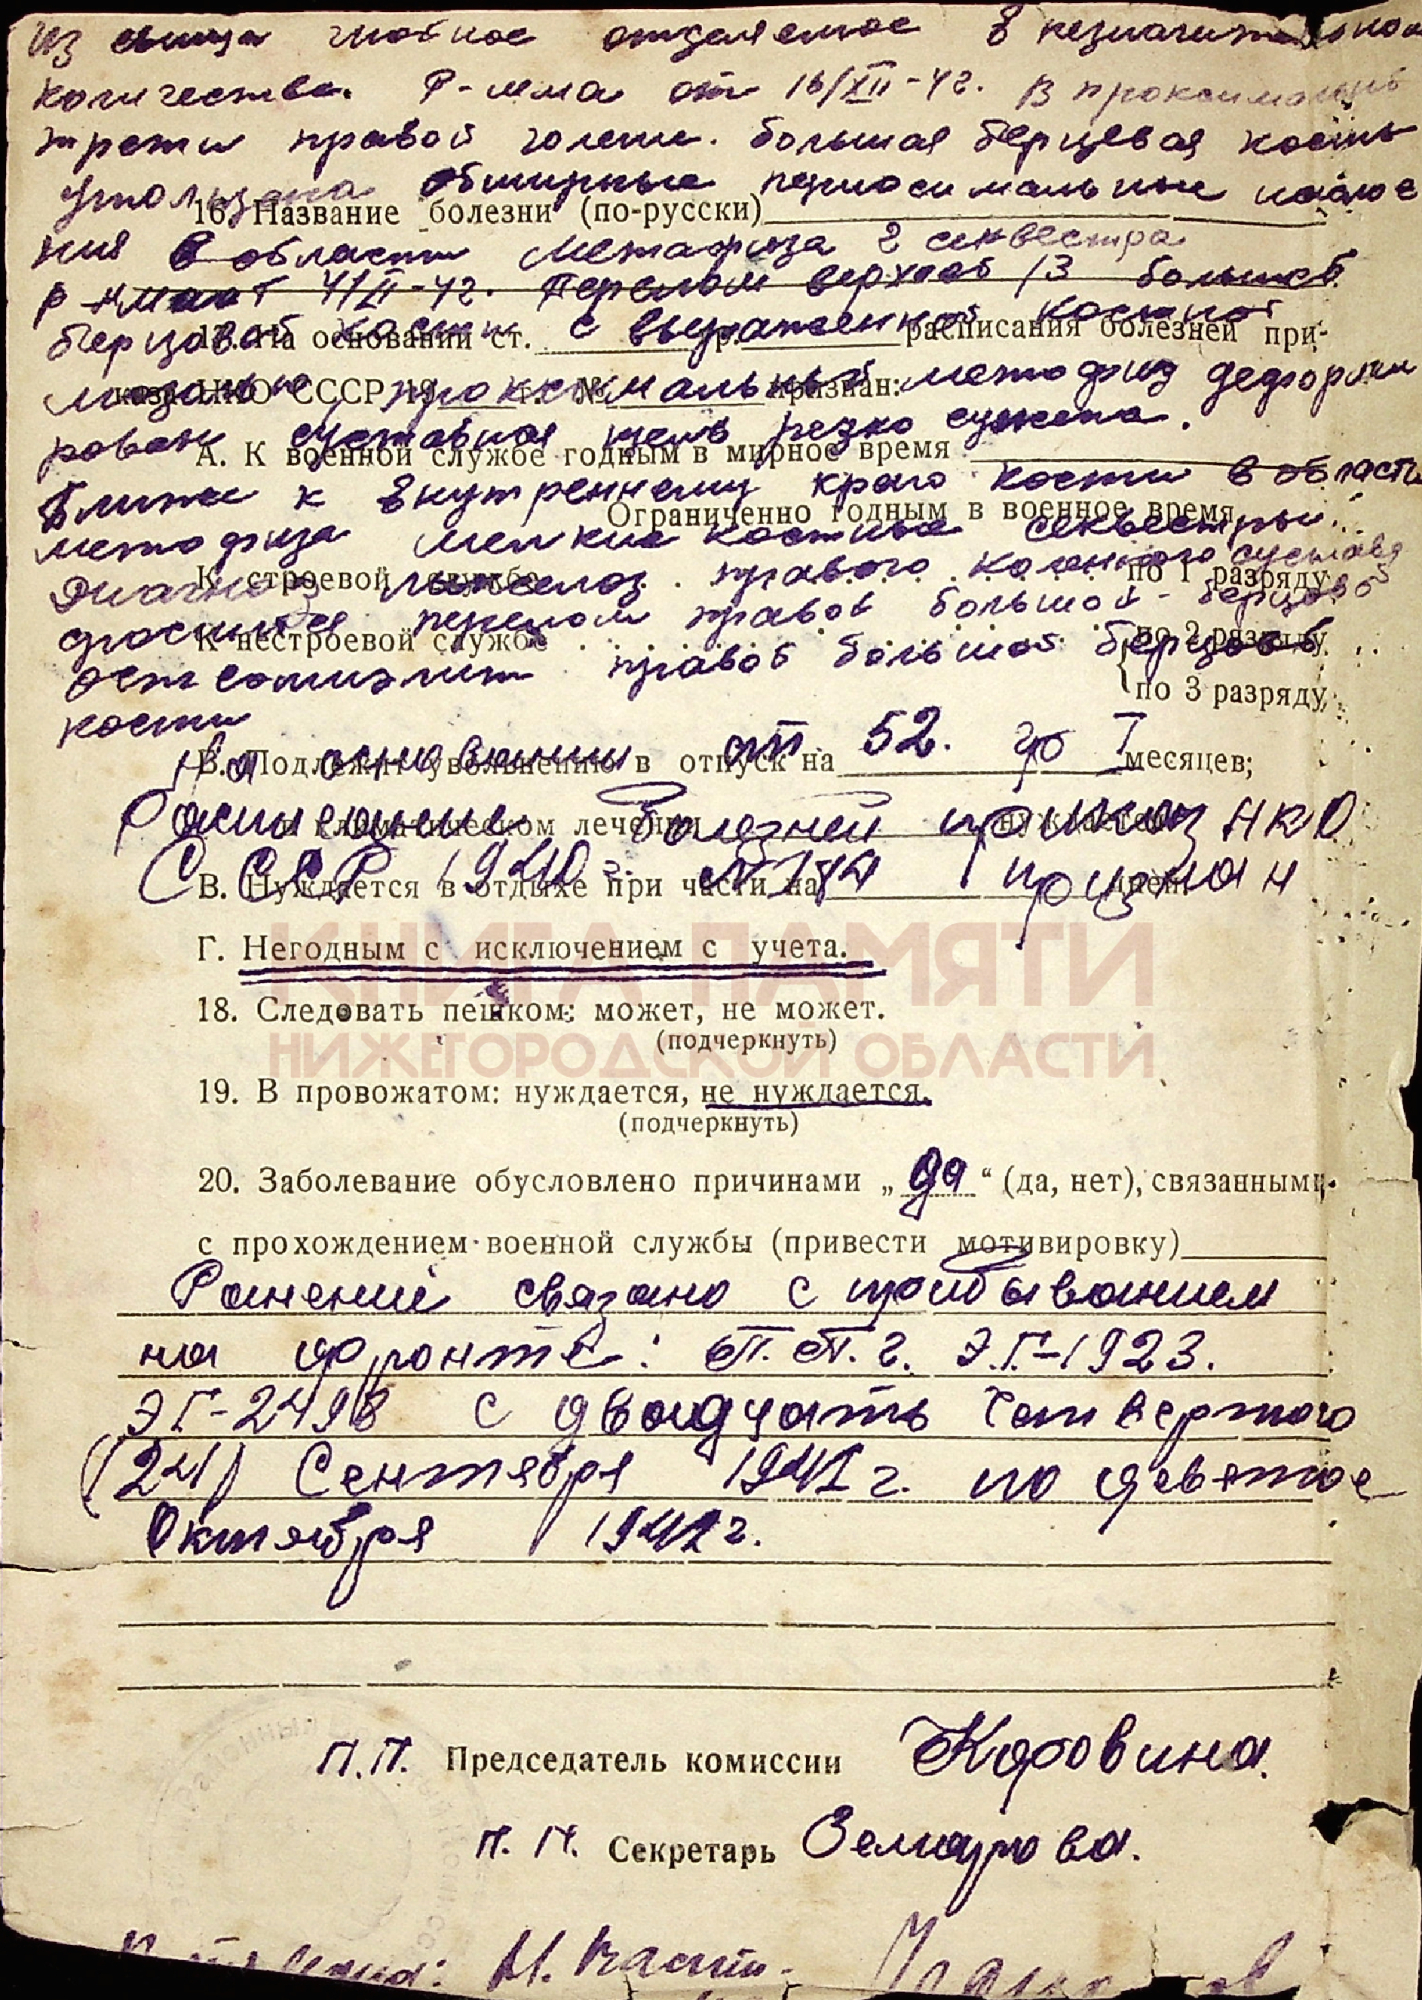 Из свища гнойное отделяемое в незначительном
количестве. Р-мма от 16/XII-42. В проксимальн
трети правой голени. большая берцевая кость
утолщена обширные периостальные наслое
16. Название болезни (по-русски)
ния в области метафиза 2 секвестра
от 4/II-42. Перелом верхней /3 большой
берцовой кости с выраженной костной
17. На основании ст. гр. расписания болезней при-
мозолью, проксимальный метафиз деформи
каза НКО СССР 19 г. № признан:
рован суставная щель резко сужена.
А. К военной службе годным в мирное время
Ближе к внутреннему краю кости в области
Ограниченно годным в военное время
метафиза мелкие костные секвестры.
Диагноз анкелоз правого коленного сустава
К строевой службе по 1 разряду
перелом правой большой - берцовой
К нестроевой службе по 2 разряду
остеомиэлит правой большой берцовой
по 3 разряду
кости
на основании ст 52. гр I
Б. Подлежит увольнению в отпуск на месяцев;
Расписание болезней приказ НКО
в климатическом лечении нуждается
СССР 1940 г. № 184 признан
В. Нуждается в отдыхе при части на дней
КНИГА ПАМЯТИ
Г. Негодным с исключением с учета.
18. Следовать пешком: может, не может.
(подчеркнуть)
НИЖЕГОРОДСКОЙ ОБЛАСТИ
19. В провожатом: нуждается, не нуждается.
(подчеркнуть)
20. Заболевание обусловлено причинами „да“ (да, нет), связанными
с прохождением военной службы (привести мотивировку)
Ранений связано с прибыванием
на фронте: П.П.г. Э.Г-1923.
ЭГ-2498 с двадцать четвертого
(24) Сентября 1941 г. по девятое
Октября 1942 г.
П.П. Председатель комиссии Коровина.
П. П. Секретарь
М. части-